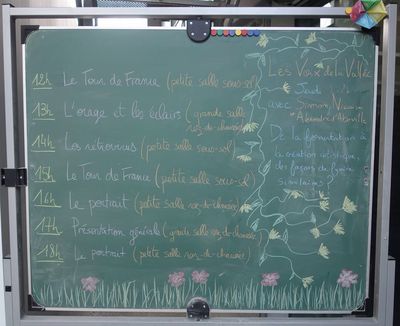 12h Le Tour de France (petite salle sous-sol)
13h L'orage et les éclairs (grande salle
rez-de-chaussée)
14h Les retrouvus (petite salle sous-sol)
15h Le Tour de France (petite salle sous-sol)
16h Le portrait (petite salle rez-de-chaussée)
17h Présentation générale (grande salle rez-de-chaussée)
18h Le portrait (petite salle rez-de-chaussée)
Les Voix de la Vallée
Jeudi
avec Simon,
Alexandre
De la
à
la création artistique,
des façons de faire
similaires